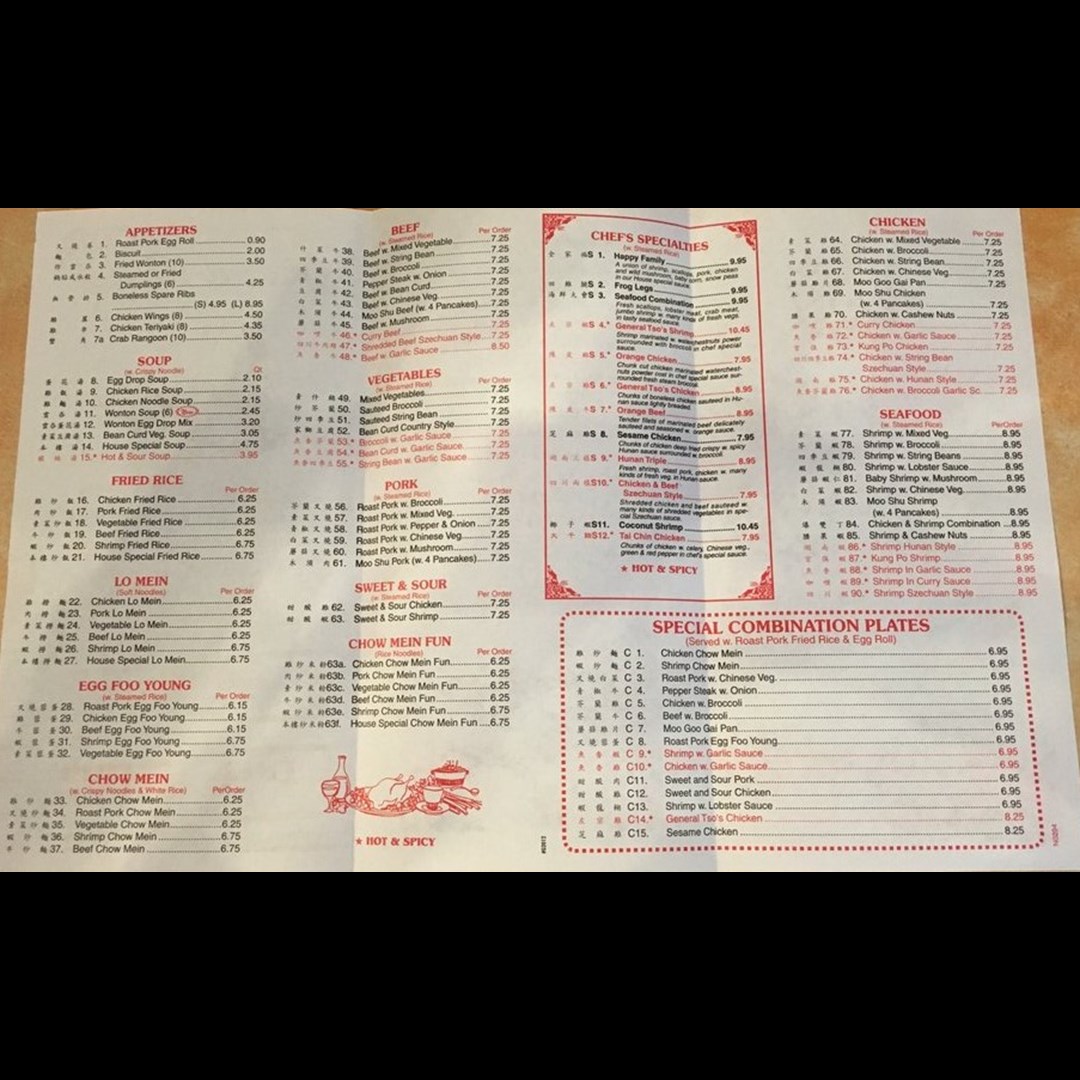 APPETIZERS
1. Roast Pork Egg Roll 0.90
2. Biscuit 2.00
3. Fried Wonton (10) 3.50
4. Steamed or Fried
Dumplings (6) 4.25
5. Boneless Spare Ribs
(S) 4.95 (L) 8.95
6. Chicken Wings (8) 4.50
7. Chicken Teriyaki (8) 4.35
7a Crab Rangoon (10) 3.50
SOUP
(w. Crispy Noodle) Qt
蛋花湯 8. Egg Drop Soup 2.10
雞飯湯 9. Chicken Rice Soup 2.15
雞麵湯 10. Chicken Noodle Soup 2.15
雲吞湯 11. Wonton Soup (6) 2.45
雲吞蛋花湯 12. Wonton Egg Drop Mix 3.20
青菜豆腐湯 13. Bean Curd Veg. Soup 3.05
本樓湯 14. House Special Soup 4.75
酸辣湯 15.* Hot & Sour Soup 3.95
FRIED RICE
Per Order
雞炒飯 16. Chicken Fried Rice 6.25
肉炒飯 17. Pork Fried Rice 6.25
青菜炒飯 18. Vegetable Fried Rice 6.25
牛炒飯 19. Beef Fried Rice 6.25
蝦炒飯 20. Shrimp Fried Rice 6.75
本樓炒飯 21. House Special Fried Rice 6.75
LO MEIN
(Soft Noodles) Per Order
雞撈麵 22. Chicken Lo Mein 6.25
肉撈麵 23. Pork Lo Mein 6.25
青菜撈麵 24. Vegetable Lo Mein 6.25
牛撈麵 25. Beef Lo Mein 6.25
蝦撈麵 26. Shrimp Lo Mein 6.75
本樓撈麵 27. House Special Lo Mein 6.75
EGG FOO YOUNG
(w. Steamed Rice) Per Order
叉燒蓉蛋 28. Roast Pork Egg Foo Young 6.15
雞蓉蛋 29. Chicken Egg Foo Young 6.15
牛蓉蛋 30. Beef Egg Foo Young 6.75
蝦蓉蛋 31. Shrimp Egg Foo Young 6.75
青菜蓉蛋 32. Vegetable Egg Foo Young 6.75
CHOW MEIN
(w. Crispy Noodles & White Rice) PerOrder
雞炒麵 33. Chicken Chow Mein 6.25
叉燒炒麵 34. Roast Pork Chow Mein 6.25
青菜炒麵 35. Vegetable Chow Mein 6.25
蝦炒麵 36. Shrimp Chow Mein 6.75
牛炒麵 37. Beef Chow Mein 6.75
BEEF
(w. Steamed Rice) Per Order
什菜牛 38. Beef w. Mixed Vegetable 7.25
四季豆牛 39. Beef w. String Bean 7.25
芥蘭牛 40. Beef w. Broccoli 7.25
青椒牛 41. Pepper Steak w. Onion 7.25
豆腐牛 42. Beef w. Bean Curd 7.25
白菜牛 43. Beef w. Chinese Veg. 7.25
木須牛 44. Moo Shu Beef (w. 4 Pancakes) 7.25
蘑菇牛 45. Beef w. Mushroom 7.25
咖喱牛 46.* Curry Beef 7.25
四川牛肉絲 47.* Shredded Beef Szechuan Style 7.25
魚香牛 48.* Beef w. Garlic Sauce 8.50
VEGETABLES
(w. Steamed Rice) Per Order
49. Mixed Vegetables 7.25
炒芥蘭 50. Sauteed Broccoli 7.25
炒四季豆 51. Sauteed String Bean 7.25
家鄉豆腐 52. Bean Curd Country Style 7.25
魚香芥蘭 53.* Broccoli w. Garlic Sauce 7.25
魚香豆腐 54.* Bean Curd w. Garlic Sauce 7.25
魚香四季豆 55.* String Bean w. Garlic Sauce 7.25
PORK
(w. Steamed Rice) Per Order
芥蘭叉燒 56. Roast Pork w. Broccoli 7.25
什菜叉燒 57. Roast Pork w. Mixed Veg. 7.25
青椒叉燒 58. Roast Pork w. Pepper & Onion 7.25
白菜叉燒 59. Roast Pork w. Chinese Veg 7.25
蘑菇叉燒 60. Roast Pork w. Mushroom 7.25
木須肉 61. Moo Shu Pork (w. 4 Pancakes) 7.25
SWEET & SOUR
(w. Steamed Rice) Per Order
甜酸雞 62. Sweet & Sour Chicken 7.25
甜酸蝦 63. Sweet & Sour Shrimp 7.25
CHOW MEIN FUN
(Rice Noodles) Per Order
雞炒米粉 63a. Chicken Chow Mein Fun 6.25
肉炒米粉 63b. Pork Chow Mein Fun 6.25
青炒米粉 63c. Vegetable Chow Mein Fun 6.25
牛炒米粉 63d. Beef Chow Mein Fun 6.25
蝦炒米粉 63e. Shrimp Chow Mein Fun 6.75
本樓炒米粉 63f. House Special Chow Mein Fun 6.75
★ HOT & SPICY
CHEF'S SPECIALTIES
(w. Steamed Rice)
全家福 S 1. Happy Family 9.95
A union of shrimp, scallops, pork, chicken
and wild mushroom, baby corn, snow peas
in our House special sauce.
田雞腿 S 2. Frog Legs 9.95
海鮮大會 S 3. Seafood Combination 9.95
Fresh scallops, lobster meat, crab meat,
jumbo shrimp w. many kinds of fresh vegs.
in tasty seafood sauce.
左宗蝦 S 4.* General Tso's Shrimp 10.45
Shrimp marinated w. waterchestnuts power
surrounded with broccoli in chef special
sauce.
陳皮雞 S 5.* Orange Chicken 7.95
Chunk cut chicken marinated waterchest-
nuts powder cost in chef special sauce sur-
rounded fresh steam broccoli.
左宗雞 S 6.* General Tso's Chicken 8.95
Chunks of boneless chicken sauteed in Hu-
nan sauce lightly breaded.
陳皮牛 S 7.* Orange Beef 8.95
Tender filets of marinated beef delicately
sauteed and seasoned w. orange sauce.
芝麻雞 S 8. Sesame Chicken 7.95
Chunks of chicken deep fried crispy w. spicy
Hunan sauce surrounded w. broccoli.
湖南三樣 S 9.* Hunan Triple 8.95
Fresh shrimp, roast pork, chicken w. many
kinds of fresh veg. in Hunan sauce.
四川兩樣 S10.* Chicken & Beef
Szechuan Style 7.95
Shredded chicken and beef sauteed w.
many kinds of shredded vegetables in spe-
cial Szechuan sauce.
椰子蝦 S11. Coconut Shrimp 10.45
大千雞 S12.* Tai Chin Chicken 7.95
Chunks of chicken w. celery, Chinese veg.,
green & red pepper in chef's special sauce.
★ HOT & SPICY
CHICKEN
(w. Steamed Rice) Per Order
素菜雞 64. Chicken w. Mixed Vegetable 7.25
芥蘭雞 65. Chicken w. Broccoli 7.25
四季豆雞 66. Chicken w. String Bean 7.25
白菜雞 67. Chicken w. Chinese Veg. 7.25
蘑菇雞片 68. Moo Goo Gai Pan 7.25
木須雞 69. Moo Shu Chicken
(w. 4 Pancakes) 7.25
腰果雞 70. Chicken w. Cashew Nuts 7.25
咖喱雞 71.* Curry Chicken 7.25
魚香雞 72.* Chicken w. Garlic Sauce 7.25
宮保雞 73.* Kung Po Chicken 7.25
四川四季豆雞 74.* Chicken w. String Bean
Szechuan Style 7.25
湖南雞 75.* Chicken w. Hunan Style 7.25
魚香芥雞 76.* Chicken w. Broccoli Garlic Sc. 7.25
SEAFOOD
(w. Steamed Rice) PerOrder
素菜蝦 77. Shrimp w. Mixed Veg. 8.95
芥蘭蝦 78. Shrimp w. Broccoli 8.95
四季豆蝦 79. Shrimp w. String Beans 8.95
蝦龍糊 80. Shrimp w. Lobster Sauce 8.95
蘑菇蝦仁 81. Baby Shrimp w. Mushroom 8.95
白菜蝦 82. Shrimp w. Chinese Veg. 8.95
木須蝦 83. Moo Shu Shrimp
(w. 4 Pancakes) 8.95
爆雙丁 84. Chicken & Shrimp Combination 8.95
腰果蝦 85. Shrimp & Cashew Nuts 8.95
湖南蝦 86.* Shrimp Hunan Style 8.95
宮保蝦 87.* Kung Po Shrimp 8.95
魚香蝦 88.* Shrimp In Garlic Sauce 8.95
咖喱蝦 89.* Shrimp In Curry Sauce 8.95
四川蝦 90.* Shrimp Szechuan Style 8.95
SPECIAL COMBINATION PLATES
(Served w. Roast Pork Fried Rice & Egg Roll)
雞炒麵 C 1. Chicken Chow Mein 6.95
蝦炒麵 C 2. Shrimp Chow Mein 6.95
叉燒白菜 C 3. Roast Pork w. Chinese Veg. 6.95
青椒牛 C 4. Pepper Steak w. Onion 6.95
芥蘭雞 C 5. Chicken w. Broccoli 6.95
芥蘭牛 C 6. Beef w. Broccoli 6.95
蘑菇雞片 C 7. Moo Goo Gai Pan 6.95
叉燒蓉蛋 C 8. Roast Pork Egg Foo Young 6.95
魚香蝦 C 9.* Shrimp w. Garlic Sauce 6.95
魚香雞 C10.* Chicken w. Garlic Sauce 6.95
甜酸肉 C11. Sweet and Sour Pork 6.95
甜酸雞 C12. Sweet and Sour Chicken 6.95
蝦龍糊 C13. Shrimp w. Lobster Sauce 6.95
左宗雞 C14.* General Tso's Chicken 8.25
芝麻雞 C15. Sesame Chicken 8.25